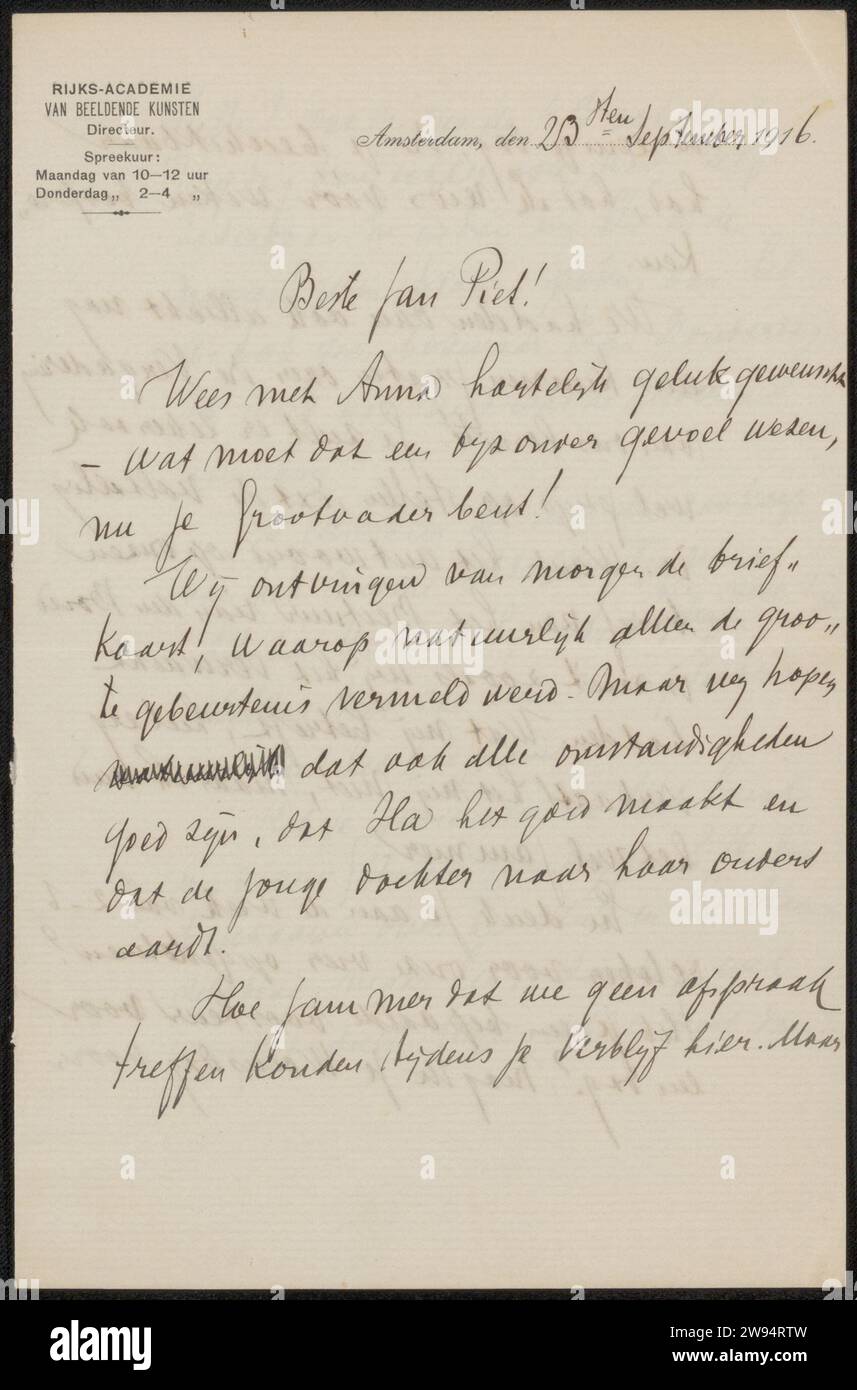 RIJKS-ACADEMIE
VAN BEELDENDE KUNSTEN
Directeur.
Spreekuur:
Maandag van 10—12 uur
Donderdag „ 2—4 „
Amsterdam, den 23sten September 1916.
Beste Jan Piet!
Wees met Anna hartelijk geluk gewenscht
– wat moet dat een byzonder gevoel wezen,
nu je Grootvader bent!
Wij ontvingen van morgen de brief„
kaart, waarop natuurlijk alleen de groo„
te gebeurtenis vermeld werd. Maar wij hopen
dat ook alle omstandigheden
goed zijn, dat Ha het goed maakt en
dat de jonge dochter naar haar ouders
aardt.
Hoe jammer dat we geen afspraak
treffen konden tijdens je verblijf hier. Maar
alamy
alamy
Image ID: 2W94RTW
www.alamy.com